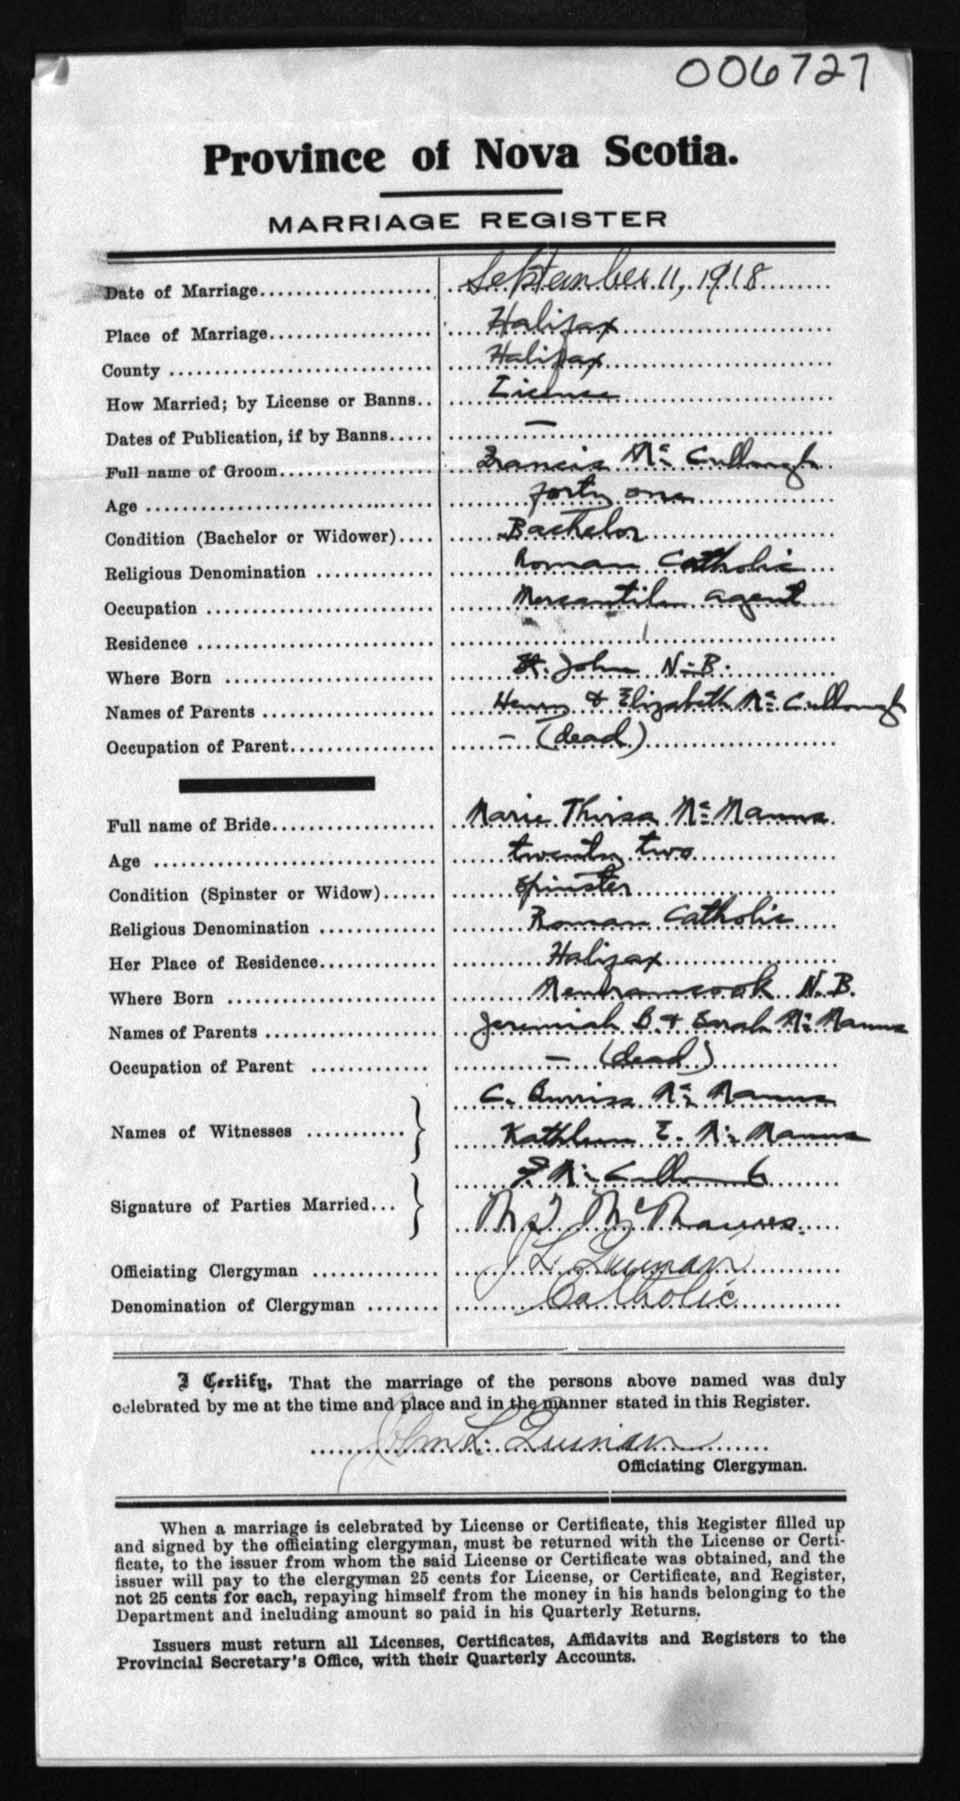 006727
Province of Nova Scotia.
MARRIAGE REGISTER
Date of Marriage September 11, 1918
Place of Marriage Halifax
County Halifax
How Married; by License or Banns License
Dates of Publication, if by Banns —
Full name of Groom Francis Mc Cullough
Age forty one
Condition (Bachelor or Widower) Bachelor
Religious Denomination Roman Catholic
Occupation Mercantile agent
Residence
Where Born St. John N.B.
Names of Parents Henry & Elizabeth Mc Cullough
Occupation of Parent — (dead)
Full name of Bride Marie Thirsa Mc Manus
Age twenty two
Condition (Spinster or Widow) Spinster
Religious Denomination Roman Catholic
Her Place of Residence Halifax
Where Born Memramcook N.B.
Names of Parents Jeremiah B & Sarah Mc Manus
Occupation of Parent — (dead)
C. Burriss Mc Manus
Names of Witnesses
Kathleen E. Mc Manus
F. Mc Cullough
Signature of Parties Married
M T McManus.
Officiating Clergyman J L Quinan
Denomination of Clergyman Catholic
I Certify, That the marriage of the persons above named was duly
celebrated by me at the time and place and in the manner stated in this Register.
John L. Quinan
Officiating Clergyman.
When a marriage is celebrated by License or Certificate, this Register filled up
and signed by the officiating clergyman, must be returned with the License or Certi-
ficate, to the issuer from whom the said License or Certificate was obtained, and the
issuer will pay to the clergyman 25 cents for License, or Certificate, and Register,
not 25 cents for each, repaying himself from the money in his hands belonging to the
Department and including amount so paid in his Quarterly Returns.
Issuers must return all Licenses, Certificates, Affidavits and Registers to the
Provincial Secretary's Office, with their Quarterly Accounts.